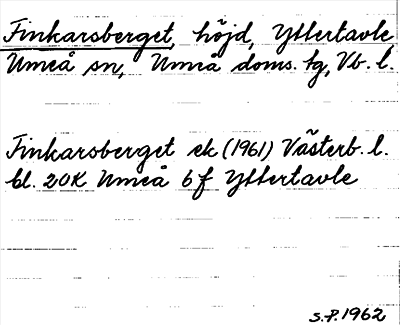 Finkarsberget, höjd, Yttertavle
Umeå sn, Umeå doms. tg, Vb. l.
Finkarsberget ek (1961) Västerb. l.
bl. 20K Umeå 6f Yttertavle
S.P. 1962